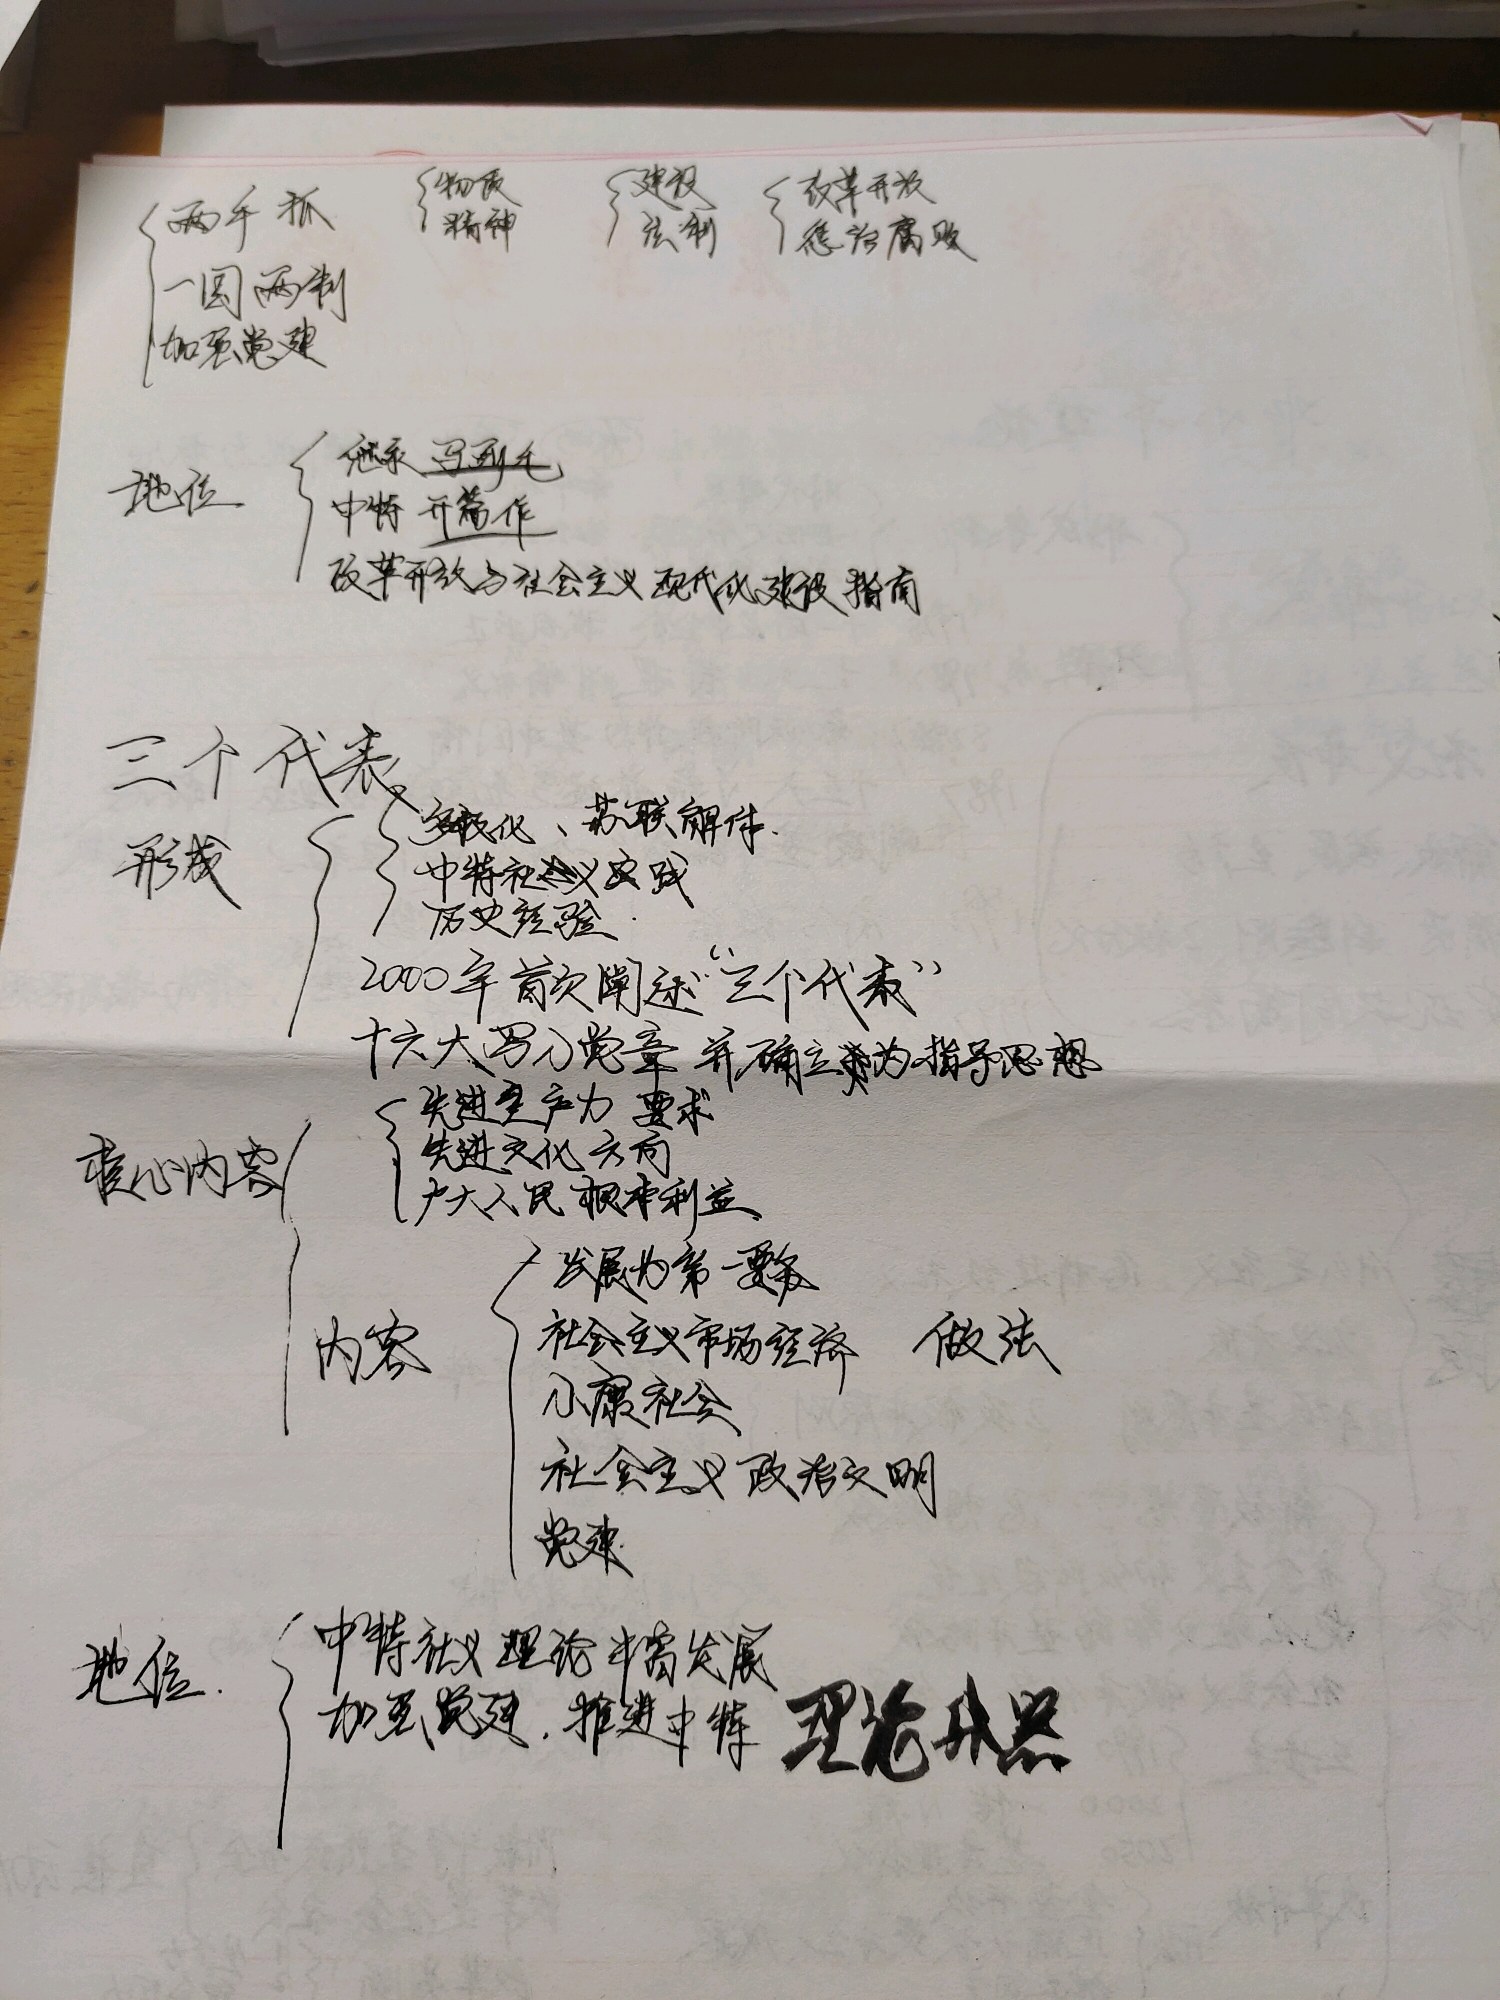 两手抓 物质 建设 改革开放
精神 法制 惩治腐败
一国两制
加强党建
地位 继承马列毛
中特开篇作
改革开放与社会主义现代化建设指南
三个代表
形成 多极化、苏联解体.
中特社会义实践
历史经验.
2000年首次阐述“三个代表”
十六大写入党章并确立为指导思想
核心内容 先进生产力要求
先进文化方向
广大人民根本利益
内容 发展为第一要务
社会主义市场经济 做法
小康社会
社会主义政治文明
党建
地位. 中特社义理论丰富发展
加强党建.推进中特 理论武器